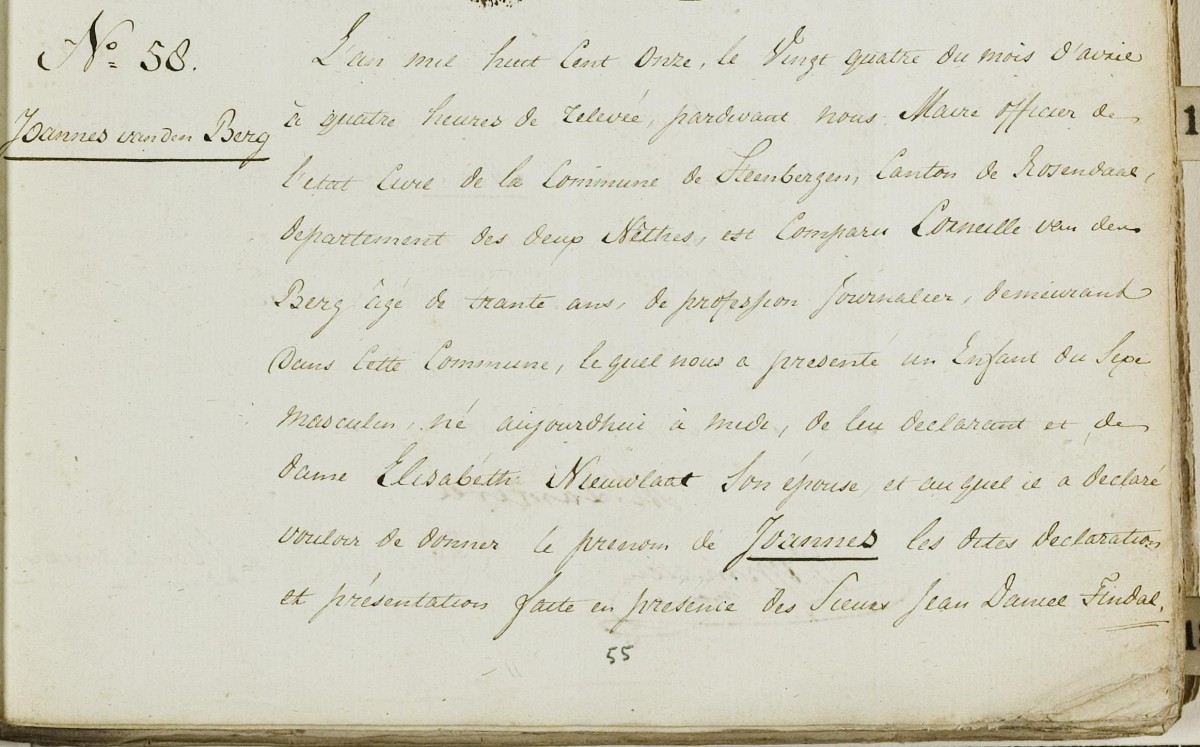 Nº 58.
Joannes van den Berg
L'an mil huit Cent Onze, le Vingt quatre du mois d'avril
à quatre heures de relevée, pardevant nous Maire officier de
l'etat Civil de la Commune de Steenbergen, Canton de Rosendaal,
departement des deux Nêthes, est Comparu Corneille van den
Berg âgé de trante ans, de profession journalier, demeurant
Dans Cette Commune, le quel nous a presenté un Enfant du Sexe
masculin, né aujourdhui à midi, de lui declarant et de
dame Elisabéth Nieuwlaat Son épouse, et au quel il a declaré
vouloir de donner le prenom de Joannes les dites Declaration
et présentation faite en presence des Sieurs Jean Daniel Findal,
55